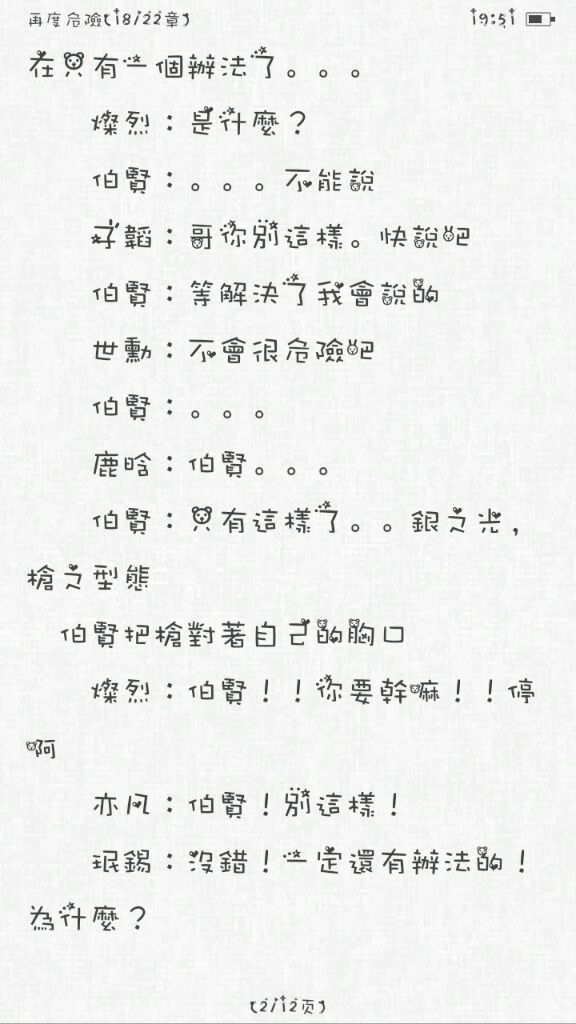 再度危險(18/22章)
19:51
在只有一個辦法了。。。
燦烈：是什麼？
伯賢：。。。不能說
子韜：哥你別這樣。快說吧
伯賢：等解決了我會說的
世勳：不會很危險吧
伯賢：。。。
鹿晗：伯賢。。。
伯賢：只有這樣了。。銀之光，
槍之型態
伯賢把槍對著自己的胸口
燦烈：伯賢！！你要幹嘛！！停
啊
亦凡：伯賢！別這樣！
珉錫：沒錯！一定還有辦法的！
為什麼？
(2/12页)